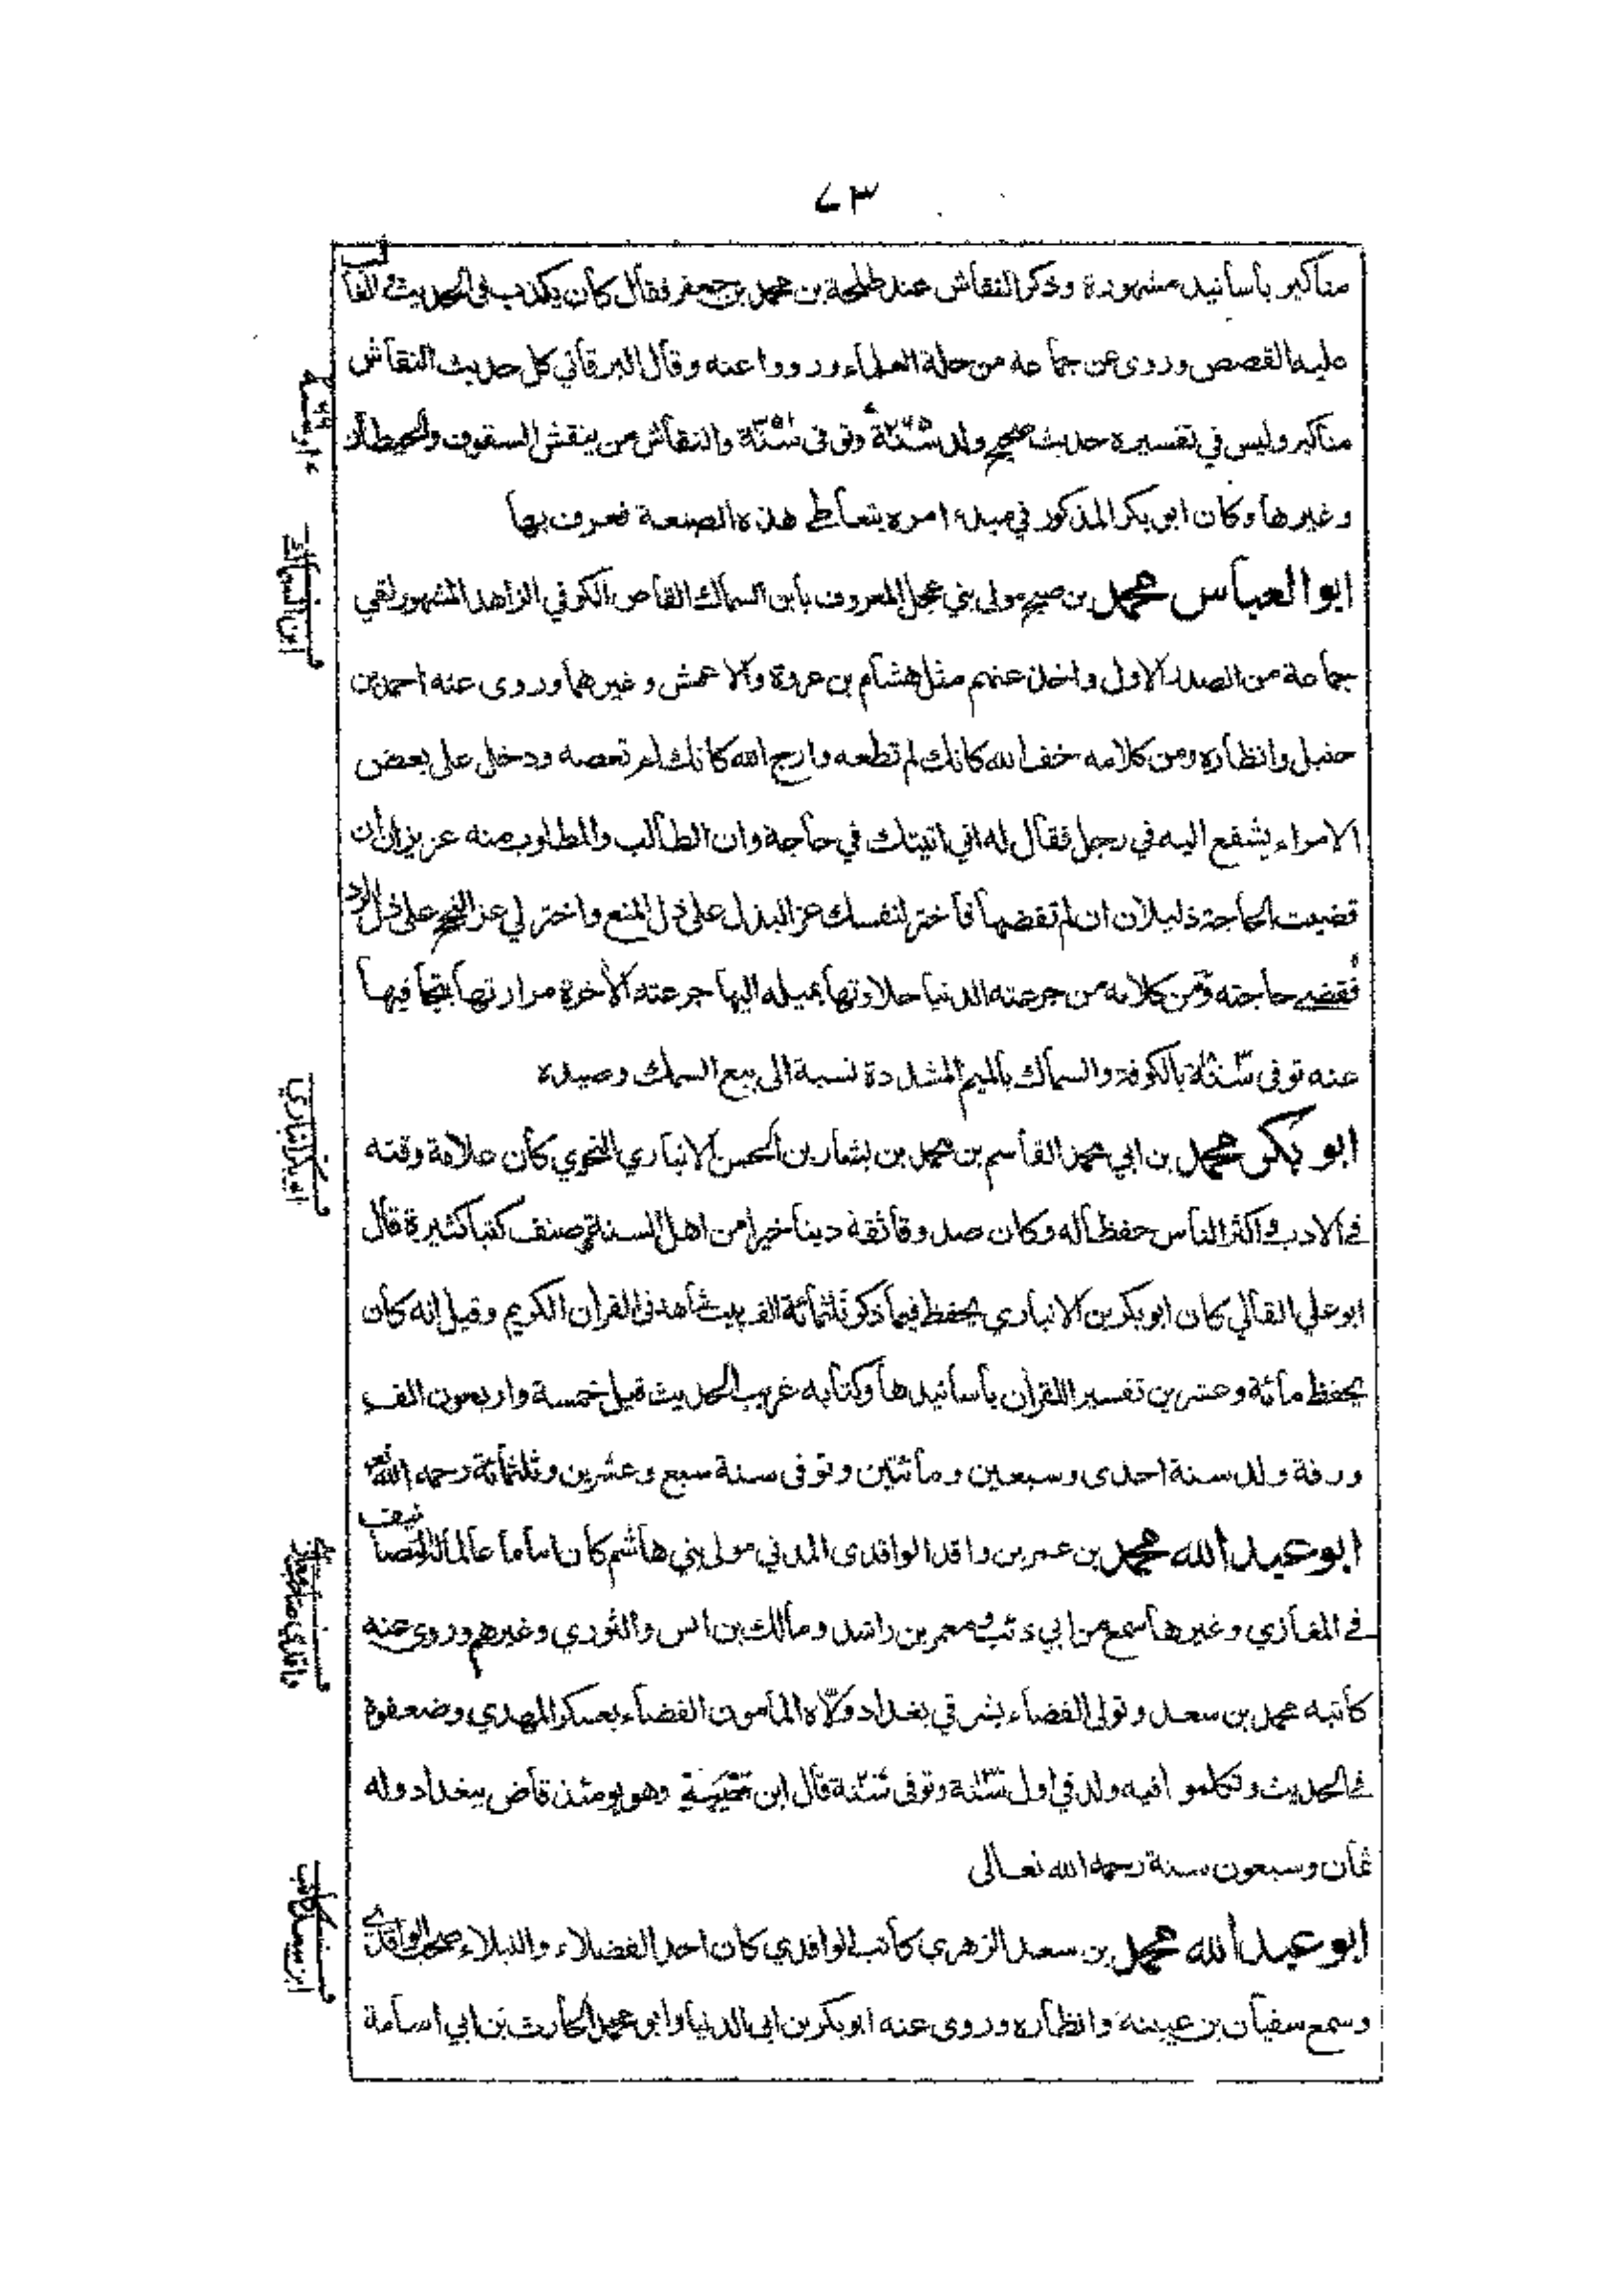 ٧٣
مناكير بأسانيد مشهورة وذكر النقاش عند طلحة بن محمد بن جعفر فقال كان يكذب في الحديث والغالب
عليه القصص وروى عن جماعة من جلة العلماء ورووا عنه وقال البرقاني كل حديث النقاش
مناكير وليس في تفسيره حديث صحيح ولد وتوفى والنقاش من ينقش السقوف والحيطان
وغيرها وكان ابو بكر المذكور في مبدء امره يتعاطى هذه الصنعة فعرف بها
ابو العباس محمد بن صبيح مولى بني عجل المعروف بابن السماك القاص الكوفي الزاهد المشهور لقي
جماعة من الصدر الاول واخذ عنهم مثل هشام بن عروة والاعمش وغيرهما وروى عنه احمد بن
حنبل وانظاره ومن كلامه خف الله كانك لم تطعه وارج الله كانك لم تعصه ودخل على بعض
الامراء يشفع اليه في رجل فقال له اني اتيتك في حاجة وان الطالب والمطلوب منه عزيزان ان
قضيت الحاجة ذليلان ان لم تقضها فاختر لنفسك عز البذل على ذل المنع واختر لي عز النجح على ذل الرد
فقضى حاجته ومن كلامه من جرعته الدنيا حلاوتها بميله اليها جرعته الآخرة مرارتها بتجافيها
عنه توفى بالكوفة والسماك بالميم المشددة نسبة الى بيع السمك وصيده
ابو بكر محمد بن ابي محمد القاسم بن محمد بن بشار بن الحسن الانباري النحوي كان علامة وقته
في الادب واكثر الناس حفظا له وكان صدوقا ثقة دينا خيرا من اهل السنة وصنف كتبا كثيرة قال
ابو علي القالي كان ابو بكر بن الانباري يحفظ فيما ذكر ثلثمائة الف بيت شاهد في القرآن الكريم وقيل انه كان
يحفظ مائة وعشرين تفسيرا للقرآن بأسانيدها وكتابه غريب الحديث قيل خمسة واربعون الف
ورقة ولد سنة احدى وسبعين ومائتين وتوفى سنة سبع وعشرين وثلثمائة رحمه الله تعالى
ابو عبد الله محمد بن عمر بن واقد الواقدى المدني مولى بني هاشم كان اماما عالما له التصانيف
في المغازي وغيرها سمع من ابي ذئب ومعمر بن راشد ومالك بن انس والثوري وغيرهم وروى عنه
كاتبه محمد بن سعد وتولى القضاء بشرقي بغداد وولاه المأمون القضاء بعسكر المهدي وضعفوه
في الحديث وتكلموا فيه ولد في اول وتوفى قال ابن قتيبة وهو يومئذ قاض ببغداد وله
ثمان وسبعون سنة رحمه الله تعالى
ابو عبد الله محمد بن سعد الزهري كاتب الواقدي كان احد الفضلاء والنبلاء صحب الواقدي
وسمع سفيان بن عيينة وانظاره وروى عنه ابو بكر بن ابى الدنيا وابو محمد الحارث بن ابي اسامة
ابن السماك
ابو بكر انباري
واقدي صاحب مغازي
ابن سعد كاتب